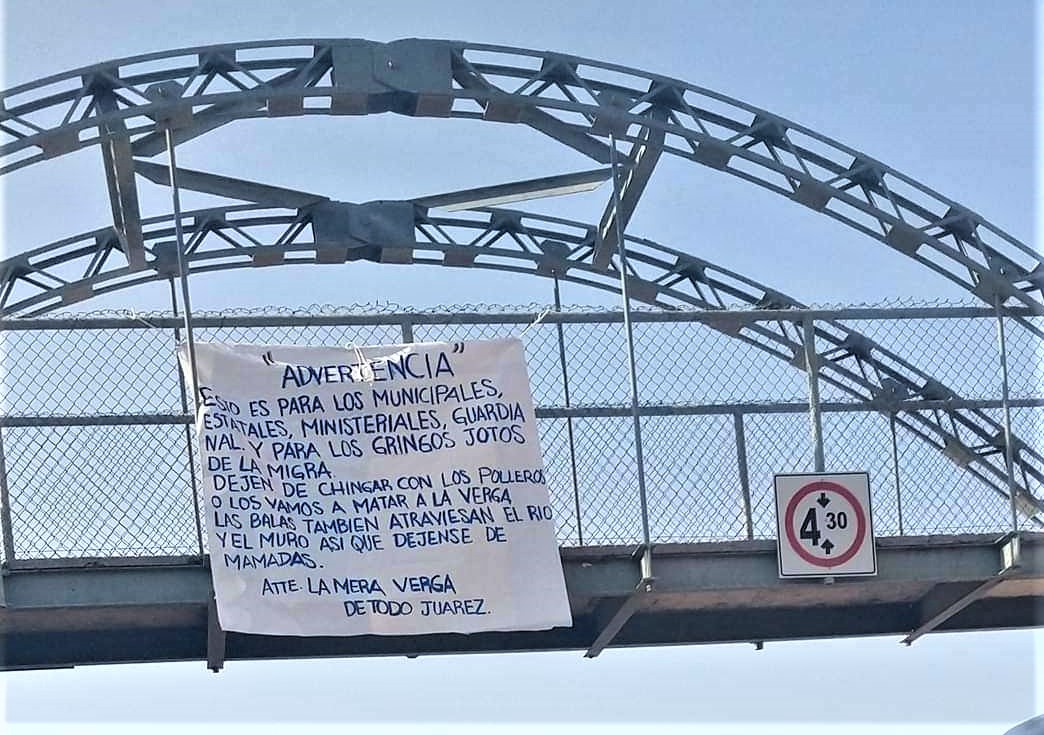 "ADVERTENCIA"
ESTO ES PARA LOS MUNICIPALES,
ESTATALES, MINISTERIALES, GUARDIA
NAL. Y PARA LOS GRINGOS JOTOS
DE LA MIGRA
DEJEN DE CHINGAR CON LOS POLLEROS
O LOS VAMOS A MATAR A LA VERGA
LAS BALAS TAMBIEN ATRAVIESAN EL RIO
Y EL MURO ASI QUE DEJENSE DE
MAMADAS.
ATTE. LA MERA VERGA
DE TODO JUAREZ.
4 30